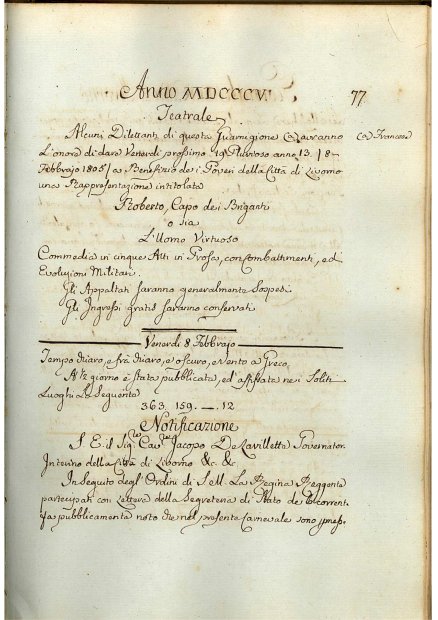 Anno MDCCCV.
77
Teatrale
Alcuni Dilettanti di questa Guarnigione (a) avranno
(a) Francese
L'onore di dare Venerdì prossimo 19 Piuvioso anno 13. /8-
Febbrajo 1805/ a Benefizio dei Poveri della Città di Livorno
una Rappresentazione intitolata
Roberto, Capo dei Briganti
o sia
L'Uomo Virtuoso
Commedia in cinque Atti in Prosa, con Combattimenti, ed
Evoluzioni Militari.
Gli Appaltati saranno generalmente Sospesi
Gli Ingressi gratis saranno conservati
Venerdì 8 Febbrajo
Tempo chiaro, e frà chiaro, e oscuro, e Vento a Greco.
A giorno è stata pubblicata, ed affissata nei Soliti
Luoghi La Seguente
363. 159. —. 12
Notificazione
S. E. il Sig.re Cav.re Jacopo De Lavilletta Governator.
Interino della Città di Livorno &c. &c.
In Seguito degl' Ordini di S. M. La Regina Reggente
partecipati con Lettera della Segreteria di Stato de' corrent.
fa pubblicamente noto che nel presente Carnevale sono